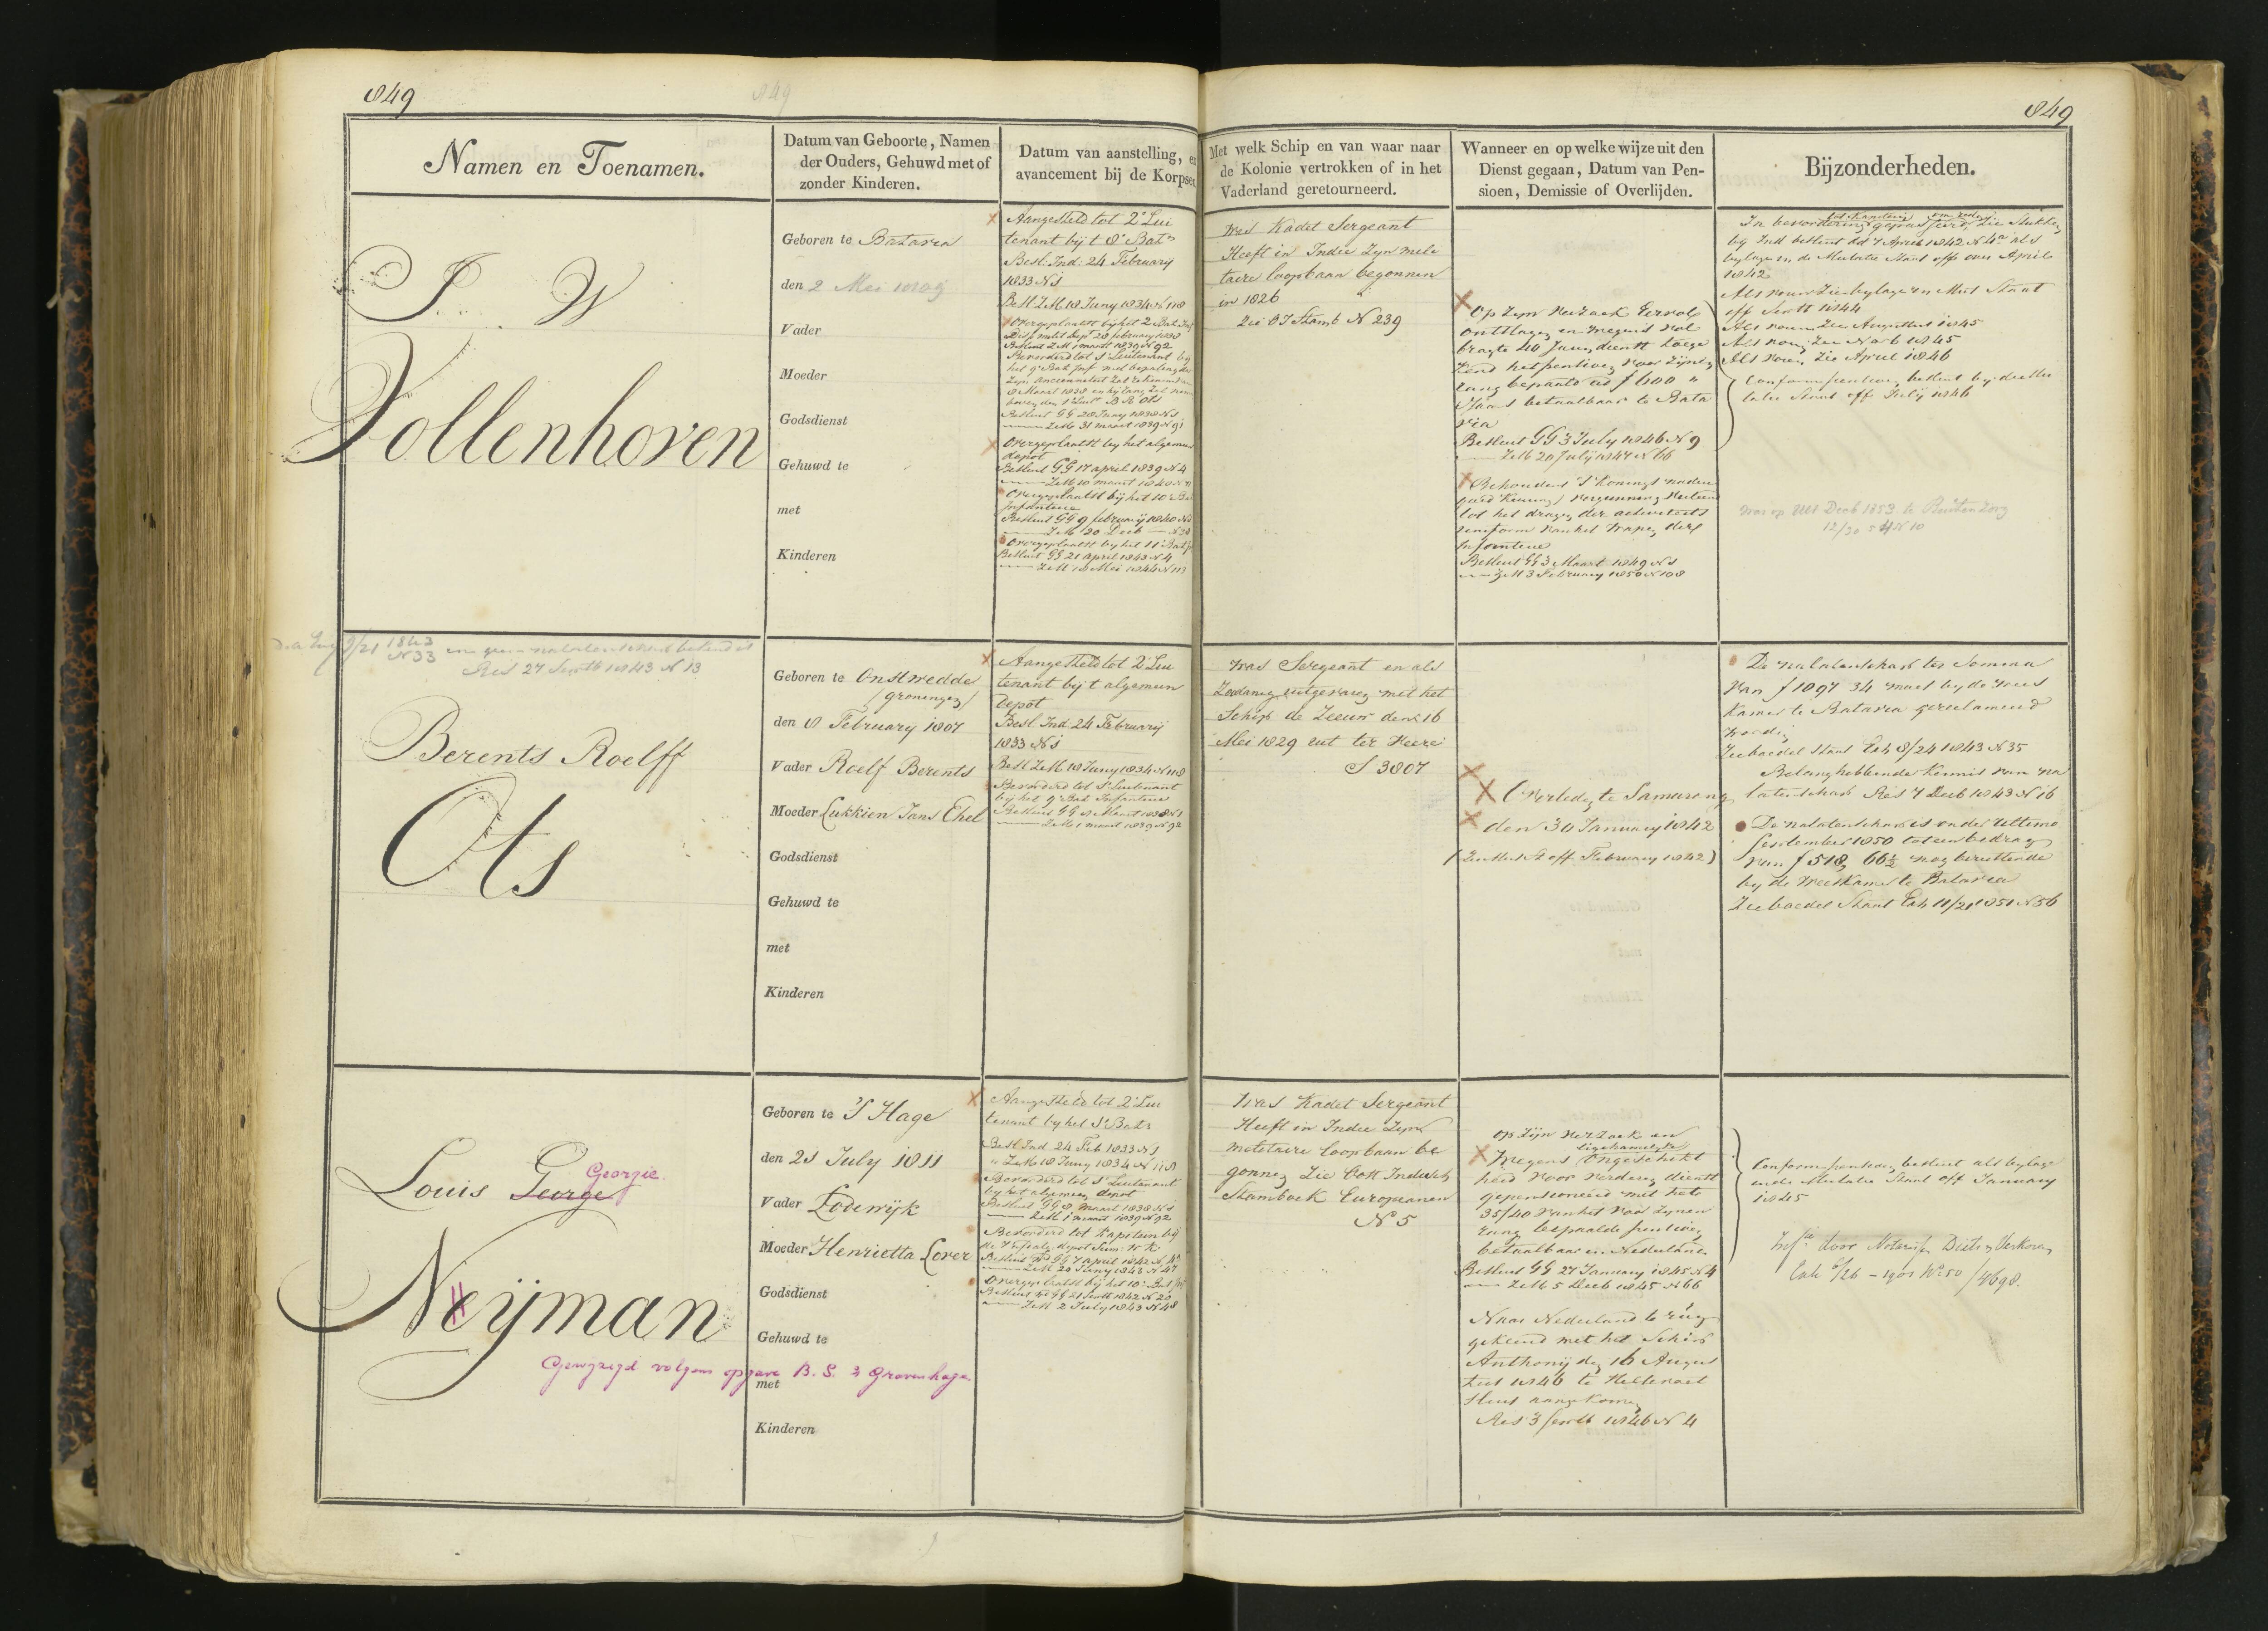 849
849
849
Namen en Toenamen.
Datum van Geboorte, Namen
der Ouders, Gehuwd met of
zonder Kinderen.
Datum van aanstelling, en
avancement bij de Korpsen
Met welk Schip en van waar naar
de Kolonie vertrokken of in het
Vaderland geretourneerd.
Wanneer en op welke wijze uit den
Dienst gegaan, Datum van Pen-
sioen, Demissie of Overlijden.
Bijzonderheden.
J. W
Vollenhoven
Geboren te Batavia
den 2 Mei 1809
Vader
Moeder
Godsdienst
Gehuwd te
met
Kinderen
Aangesteld tot 2e Lui
tenant bij t 8e Batn
Besl. Ind: 24 February
1833 N 1
Besl. Z.M. 18 Juny 1834 N 118
Overgeplaatst bij het 2 Bat Inf
Besluit Z M 1 maart 1839 N 92
Bevorderd tot 1e Luitenant bij
het 9e Bat Inf met bepaling dat
Zijn ancienneteit zal
8 Maart 1838 en hij
boven den 1e Luit B R Ots
Besluit GG 28 Juny 1838 N 1
Z M 31 maart 1839 N 91
Overgeplaatst bij het algemeen
depot
Besluit GG 17 april 1839 N 4
Z M 10 maart 1840 N
Overgeplaatst bij het 10e Bat
Infanterie
Besluit GG 9 february 1840 N
Z M 20 Decb N 38
Overgeplaatst bij het 11e Bat
Besluit GG 21 april 1843 N 4
Z M 18 Mei 1844 N 113
Was Kadet Sergeant
Heeft in Indie Zijn mili
taire loopbaan begonnen
in 1826
Zie OI Stamb N 239
Op Zijn verzoek Eervol
ontslagen en wegens vol
bragte 20 Jaren dienst toege
kend het pensioen voor Zijnen
rang bepaald ad f 600 "
'S Jaars betaalbaar te Bata
via
Besluit GG 3 July 1846 N 9
Z M 20 July 1847 N 66
Behoudens 's Konings nadere
goed Keuring vergunning verleen
tot het dragen der activiteits
uniform van het wapen der
Infanterie
Besluit GG 3 Maart 1849 N 1
Z M 3 February 1850 N 108
In bevordering gepasseerd, Zie Stukken
tot Kapitein
bij Ind besluit dd 7 April 1842 N 4a als
bijlage in de Mutatie Staat off over April
1842
Als voren Zie bijlage in Mut Staat
off Septb 1844
Als voren Zie Augustus 1845
Als voren Zie Novb 1845
Als voren Zie April 1846
Conform pensioen besluit bij de Mu
tatie Staat off July 1846
Was op Ult Decb 1853 te Buitenzorg
12/30 54 N 10
9/21 1843
N 33 een nalatenschap bekend is
Res 27 Septb 1843 N 13
Berents Roelff
Ots
Geboren te Onstwedde
(Groningen)
den 8 February 1807
Vader Roelf Berents
Moeder Lukkien Jans Ehel
Godsdienst
Gehuwd te
met
Kinderen
Aangesteld tot 2e Lui
tenant bij t algemeen
Depot
Besl. Ind. 24 February
1833 N 1
Besl Z M 18 Juny 1834 N 118
Bevorderd tot 1e Luitenant
bij het 9e Bat Infanterie
Besluit GG 8 Maart 1838 N 1
Z M 1 maart 1839 N 92
Was Sergeant en als
Zoodanig uitgevaren met het
Schip de Zeeuw den 16
Mei 1829 uit ter Veere
S 3807
Overleden te Samarang
den 30 January 1842
(Zie Mut St off February 1842)
De nalatenschap ter Somma
van f 1097 34 moet bij de wees
Kamer te Batavia gereclameerd
worden
Zie boedel Staat Exh 8/24 1843 N 35
Belanghebbende Kennis van na
latenschap Res 7 Decb 1843 N 16
De nalatenschap is onder ultimo
September 1850 tot een bedrag
van f 518, 66½ nog berustende
bij de Weeskamer te Batavia
Zie boedel Staat Exh 11/21 1851 N 56
Louis George
Georgie.
Neijman
Gewyzigd volgens opgave B. S. 's Gravenhage
Geboren te 'S Hage
den 21 July 1811
Vader Lodewijk
Moeder Henrietta Lover
Godsdienst
Gehuwd te
met
Kinderen
Aangesteld tot 2e Lui
tenant bij het 1e Batn
Besl Ind 24 Feb 1833 N 1
" Z M 18 Juny 1834 N 118
Bevorderd tot 1e Luitenant
bij het algemeen depot
Besluit GG 8 maart 1838 N 1
Z M 1 maart 1839 N 92
Bevorderd tot Kapitein bij
Besluit GG 7 April 1842 N 4a
Z M 20 Juny 1843 N 47
Overgeplaatst bij het 10e Bat Inf
Besluit GG 21 Septb 1842 N 20
Z M 2 July 1843 N 48
Was Kadet Sergeant
Heeft in Indie Zijn
militaire loopbaan be
gonnen Zie Oost Indisch
Stamboek Europeanen
N 5
Op Zijn verzoek en
ligchamelijke
wegens Ongeschikt
heid voor verderen dienst
gepensioneerd met het
35/40 van het voor Zijnen
rang bepaalde pensioen
betaalbaar in Nederland
Besluit GG 27 January 1845 N 4
Z M 5 Decb 1845 N 66
Naar Nederland te rug
gekeerd met het Schip
Anthonij den 16 Augus
tus 1846 te Hellevoet
Sluis aangekomen
Res 3 Septb 1846 N 4
Conform pensioen besluit als bylage
in de Mutatie Staat off January
1845
Door Notaris
1901 No 50 / 4698.